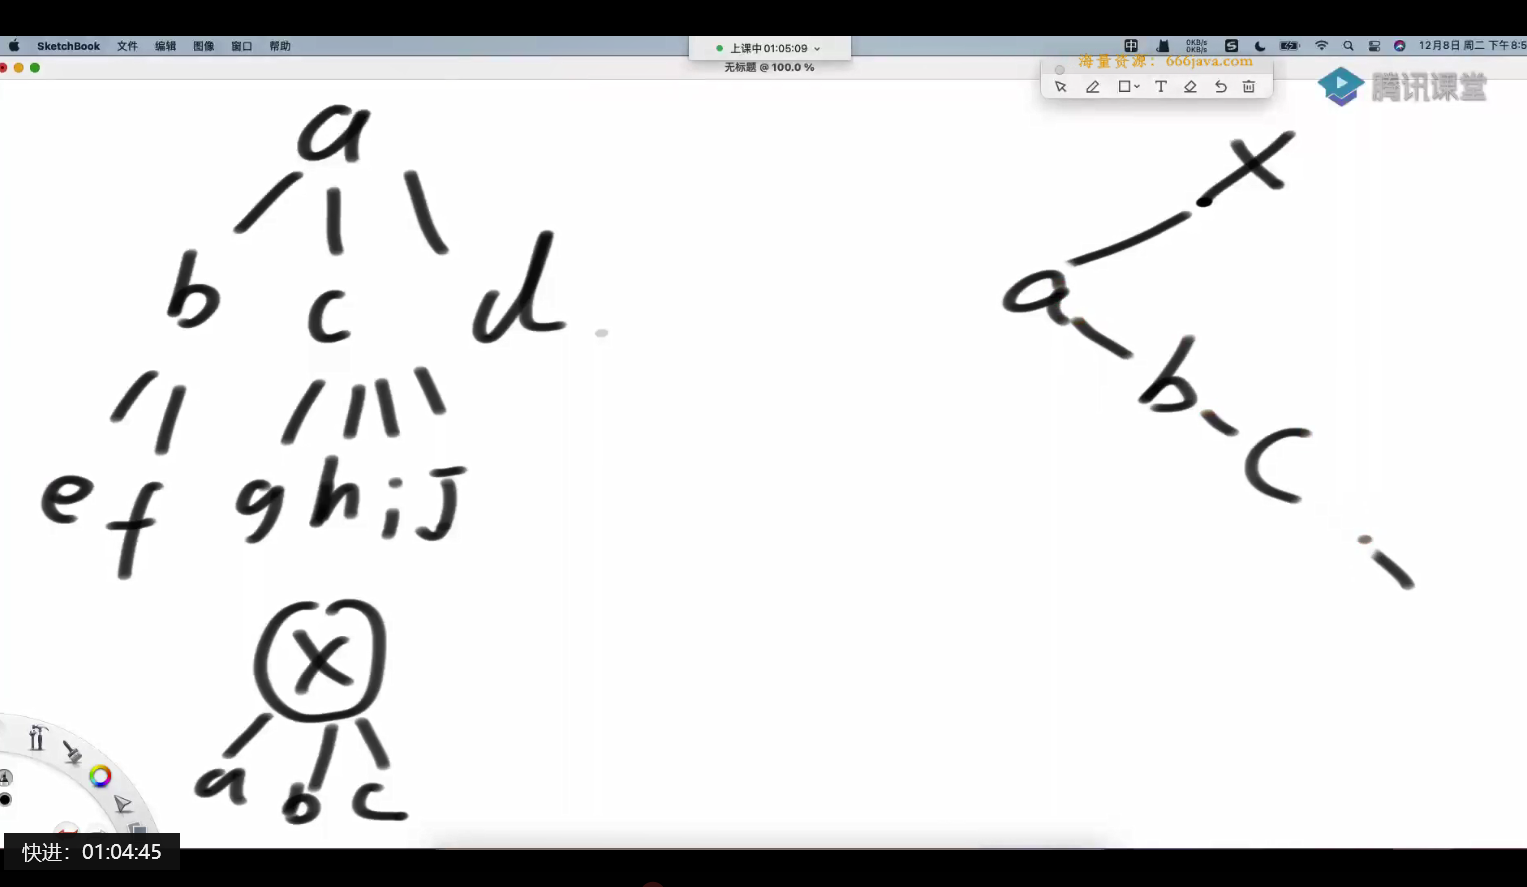 SketchBook 文件 编辑 图像 窗口 帮助
上课中 01:05:09
0KB/s
0KB/s
12月8日 周二 下午8:5
无标题 @ 100.0 %
海量资源：666java.com
T
腾讯课堂
a
b c d
e f g h i j
x
a b c
x
a
b
c
快进： 01:04:45